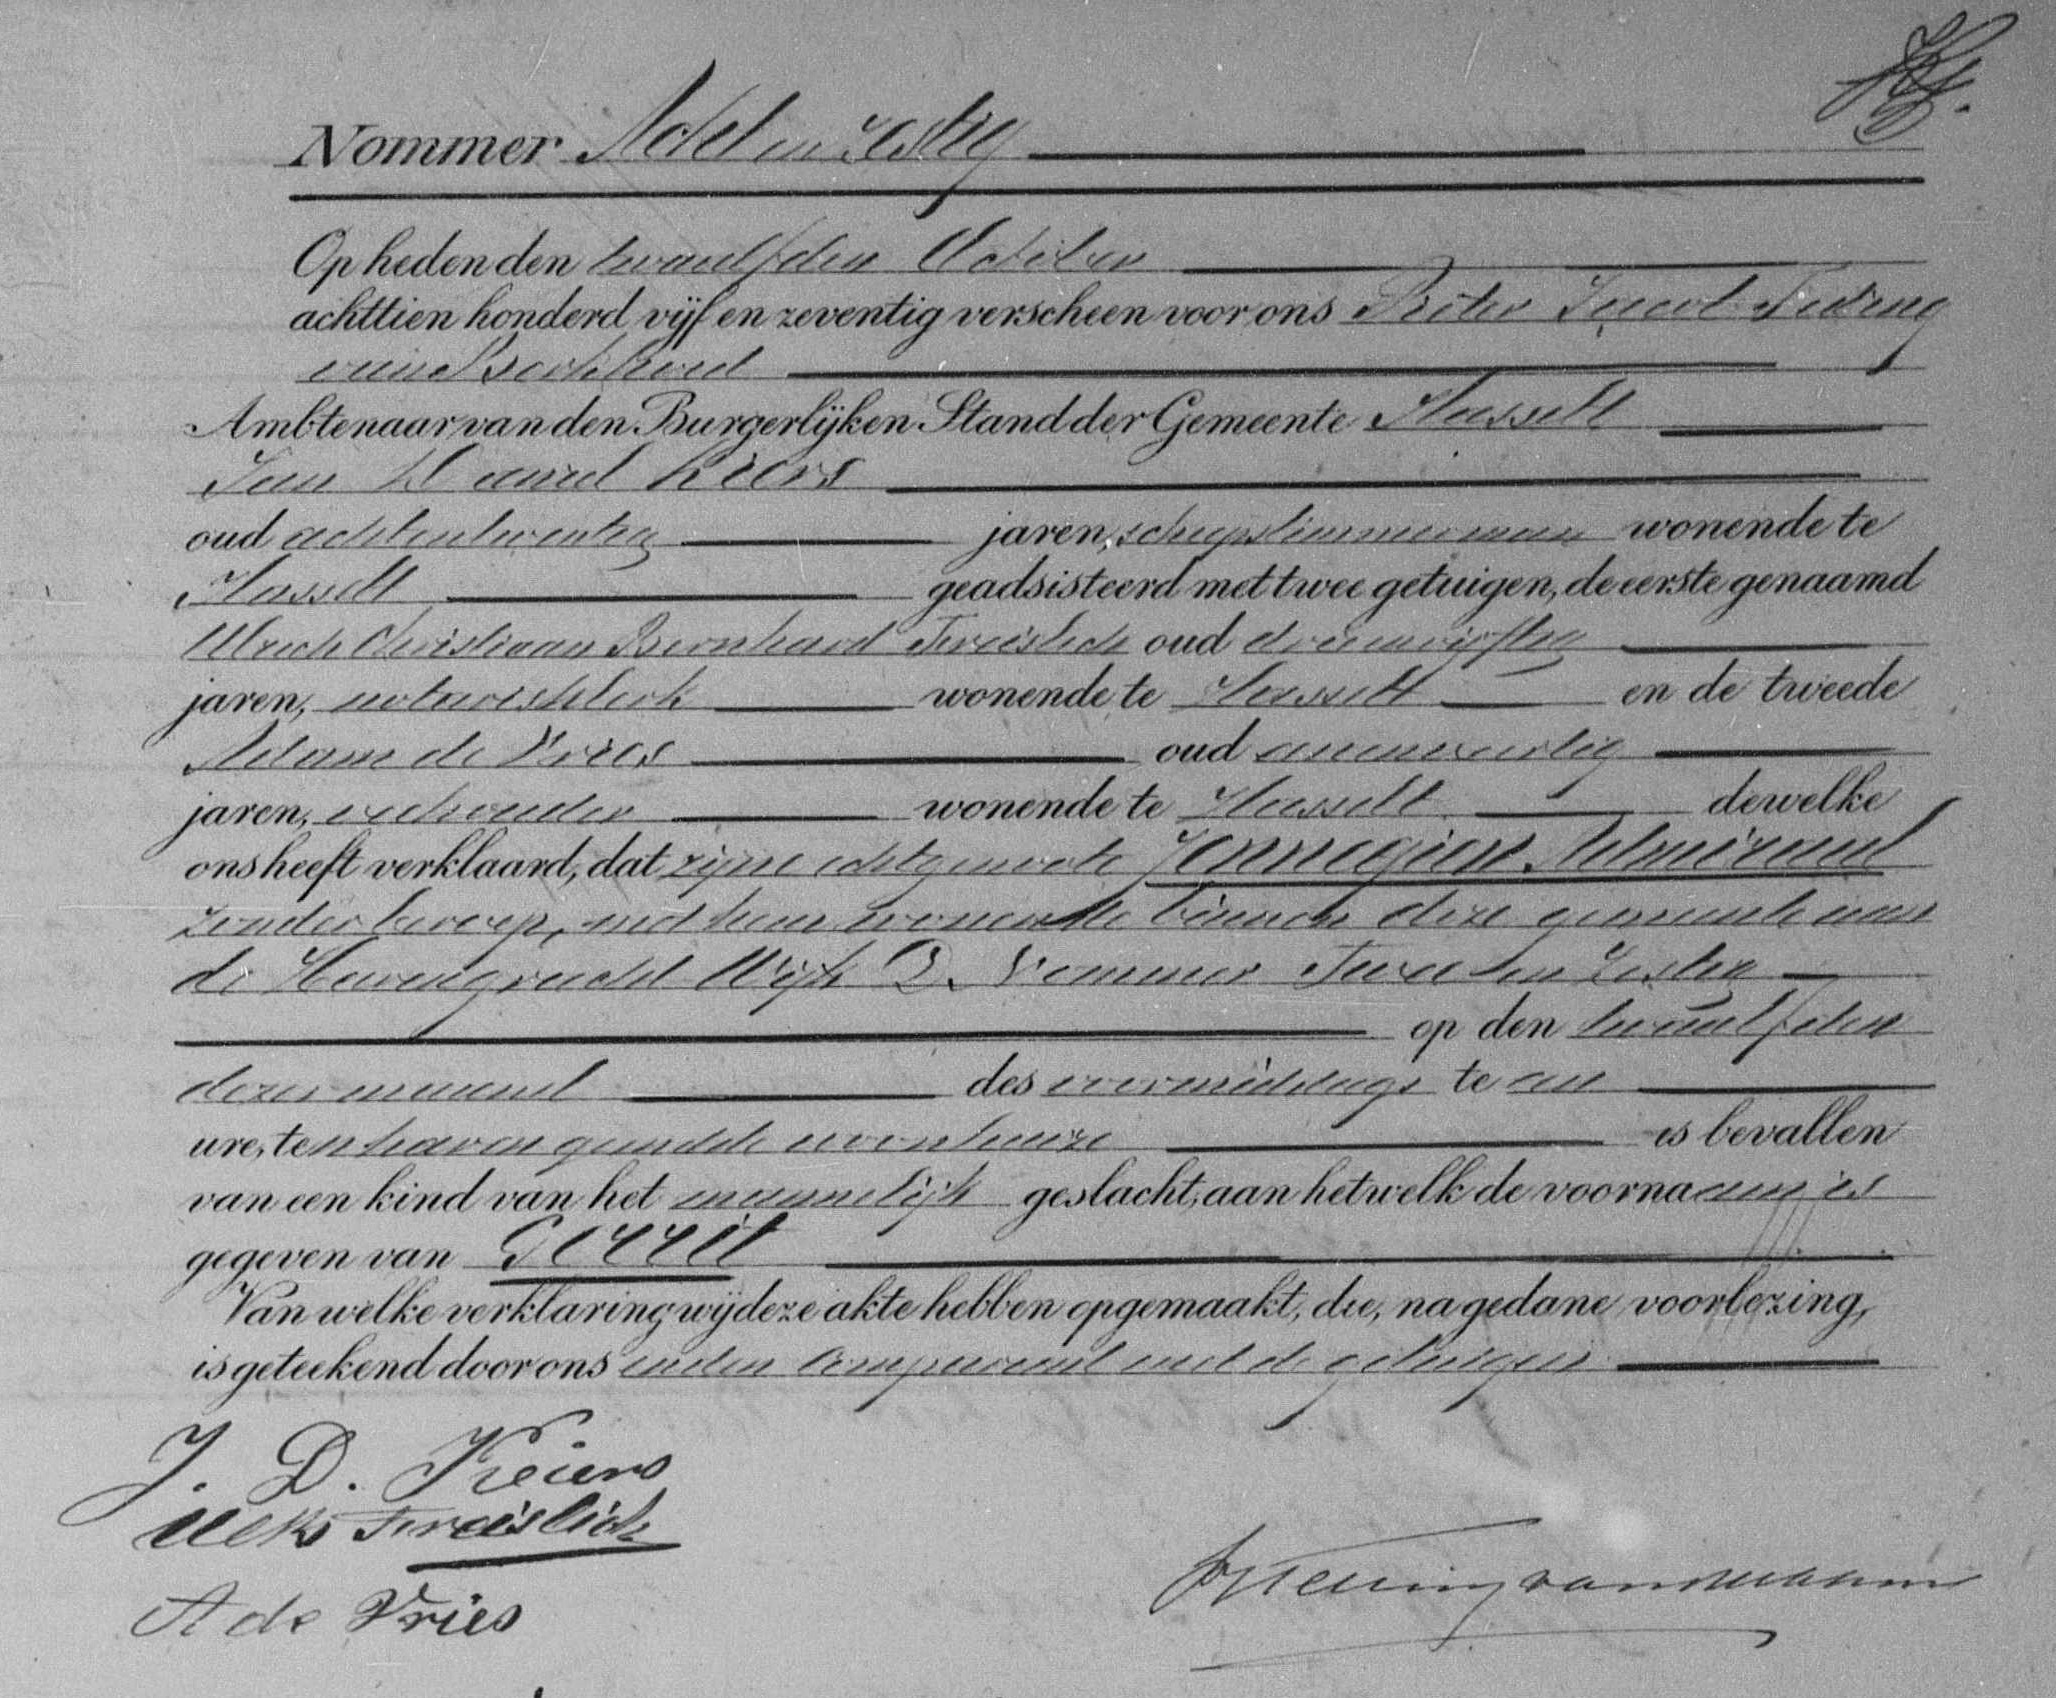 Nommer Acht en Zestig
Op heden den twaalfden October
achttien honderd vijf en zeventig verscheen voor ons Pieter Jacob
van
Ambtenaar van den Burgerlijken Stand der Gemeente Hasselt
Jan Daniel Kiers
oud achtentwintig jaren, scheepstimmerman wonende te
Hasselt geadsisteerd met twee getuigen, de eerste genaamd
Ulrich Christiaan Bernhard Freislich oud drieenvijftig
jaren, notarisklerk wonende te Hasselt en de tweede
Adam de Vries oud eenenveertig
jaren, verhouder wonende te Hasselt dewelke
ons heeft verklaard, dat zijne echtgenoote Jennegien Admiraal
zonder beroep, met hem wonende binnen deze gemeente aan
de Heerengracht Wijk D. Nommer Twee en Zestig
op den twaalfden
dezer maand des voormiddags te een
ure, ten haren gemelde woonhuize is bevallen
van een kind van het mannelijk geslacht, aan hetwelk de voornaam is
gegeven van Gerrit
Van welke verklaring wij deze akte hebben opgemaakt, die, na gedane voorlezing,
is geteekend door ons en den Comparant met de getuigen
J. D. Keiers
UCB Freislich
A de Vries